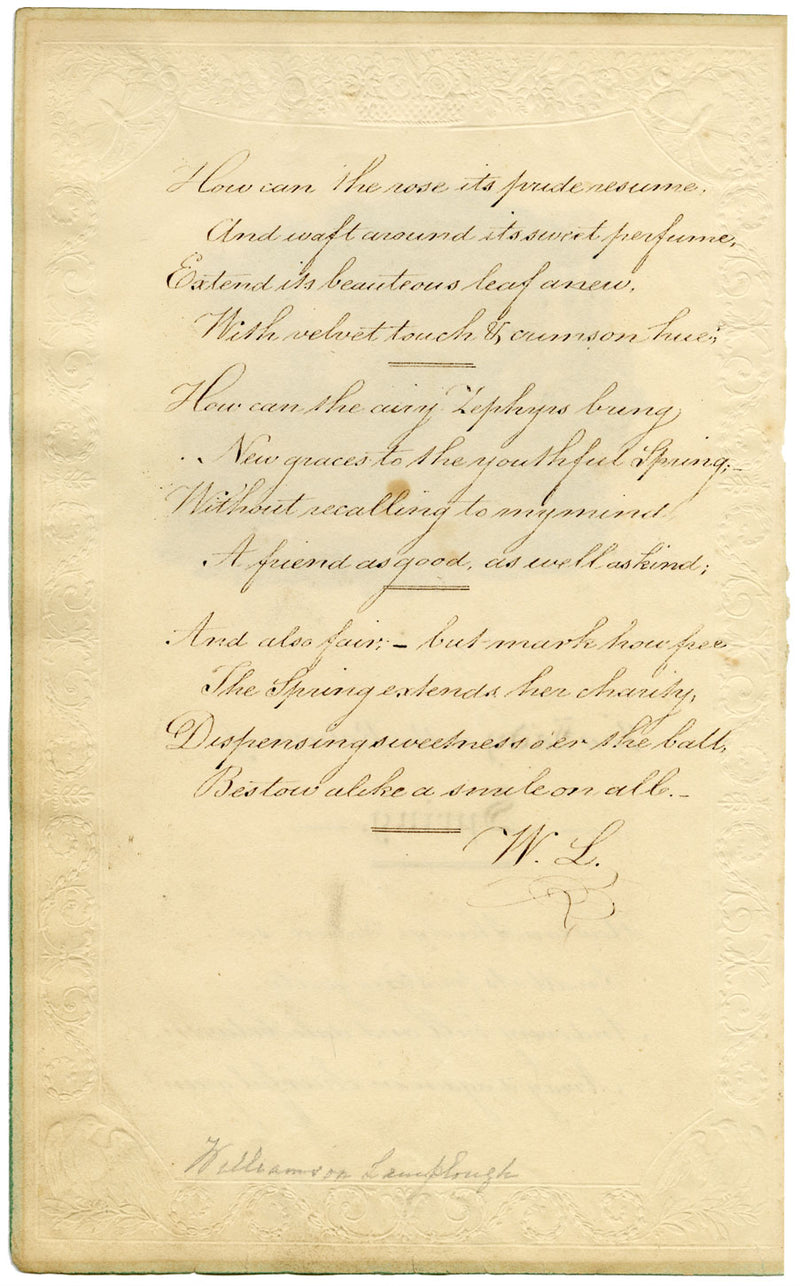 How can the rose its pride resume,
And waft around its sweet perfume,
Extend its beauteous leaf anew,
With velvet touch & crimson hue;
How can the airy Zephyrs bring
New graces to the youthful Spring;
Without recalling to my mind
A friend as good, as well as kind;
And also fair; – but mark how free
The Spring extends her charity,
Dispensing sweetness o'er the ball,
Bestow alike a smile on all. –
W. L.
Williamson Lamplough